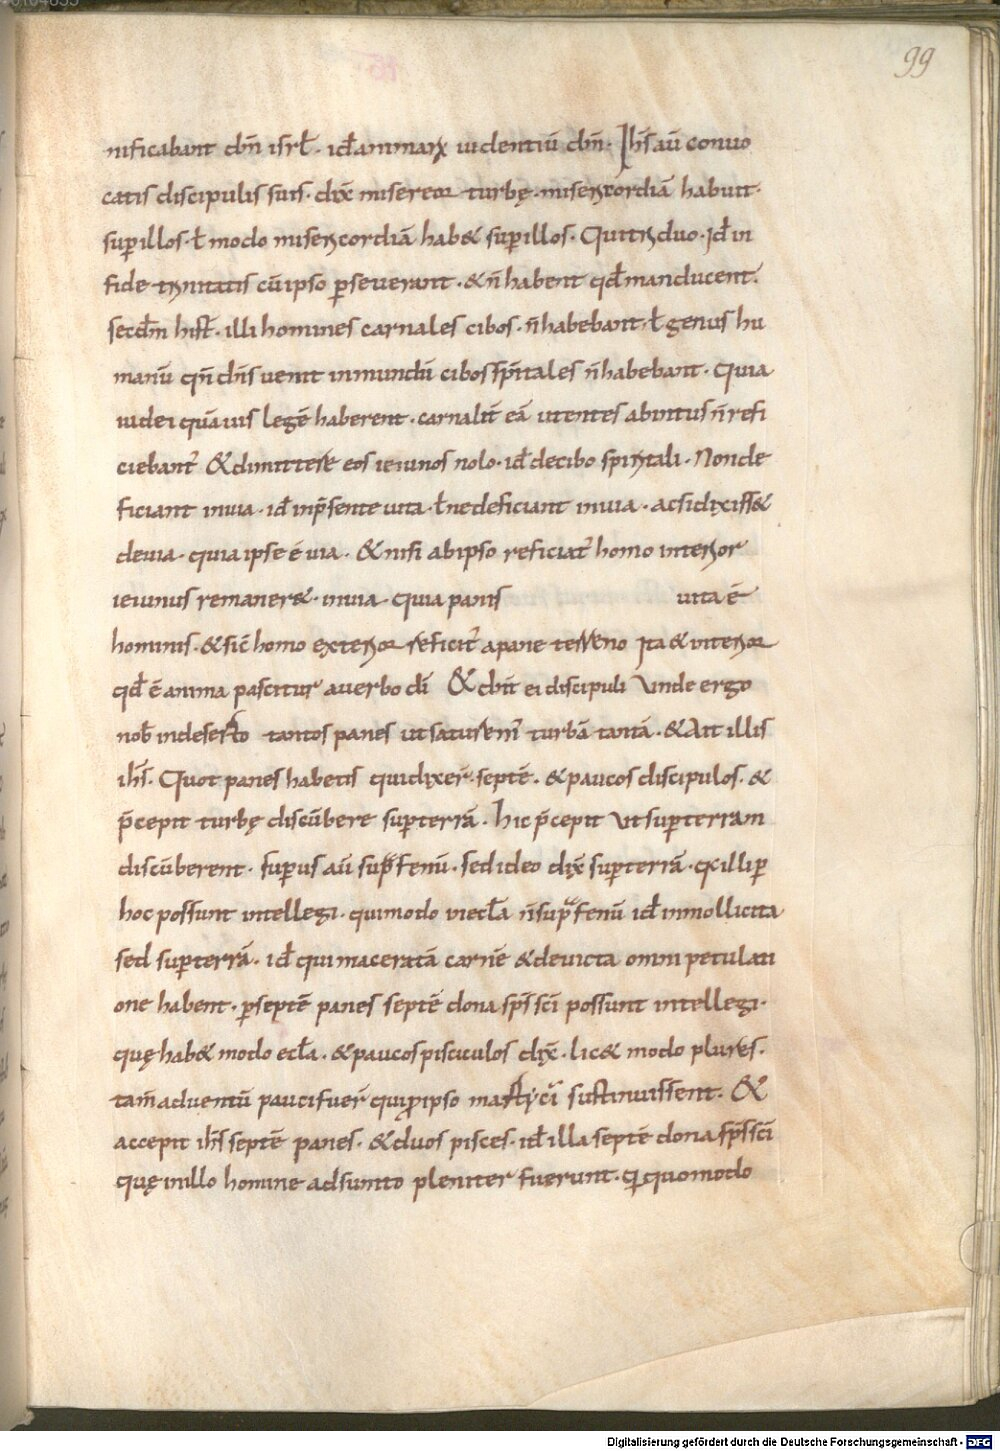 99
nificabant dm̄ isrł. id̄ animarꝝ uidentiū dm̄. Ihs̄ aū conuo
catis discipulis suis. dix̄ misereor turbę. misericordiā habuit
sup illos. ł modo misericordiā hab& sup illos. Qui triduo. Id̄ in
fide trinitatis cū ipso perseuerant. & n̄ habent qd̄ manducent.
secdm̄ hist̄. illi homines carnales cibos. n̄ habebant. ł genus hu
manū qn̄ dn̄s uenit in mundū cibos sp̄itales n̄ habebant. Quia
iudei quāuis legē haberent. carnalit̄ eā utentes ab intus n̄ refi
ciebant̄ & dimittere eos ieiunos nolo. id̄ de cibo spiritali. Non de
ficiant in uia. id̄ in p̄sente uita. ł ne deficiant in uia. ac si dixiss&
de uia. quia ipse ē uia. & nisi ab ipso reficiat̄ homo interior
ieiunus remaner&. in uia. quia panis uita ē
hominis. & sic̄ homo exterior reficit̄ a pane terreno Ita & interior
qd̄ ē anima pascitur a uerbo dī & dix̄nt ei discipuli Unde ergo
nob̄ in deserto tantos panes ut saturem̄ turbā tantā. & Ait illis
ihs̄. Quot panes habetis qui dixer̄. septē. & paucos discipulos. &
p̄cepit turbę discūbere sup terrā. hic p̄cepit Ut sup terram
discūberent. superius aū sup̄ fenū. sed ideo dix̄ sup terrā. q̄ illi p
hoc possunt intellegi. qui modo in ecłā n̄ sup̄ fenū id̄ in mollicita
sed sup terrā. id̄ qui maceratā carnē & deuicta omni petulati
one habent. ꝑ septē panes septē dona sp̄s sc̄i possunt intellegi.
quę hab& modo ecła. & paucos pisciculos dix̄. lic& modo plures.
tam̄ aduentū pauci fuer̄ qui ꝓ ipso martyriū sustinuissent. &
accepit ihs̄ septē panes. & duos pisces. id̄ illa septē dona sp̄s sc̄i
quę in illo homine adsumto pleniter fuerunt. q̄ quomodo
Digitalisierung gefördert durch die Deutsche Forschungsgemeinschaft - DFG